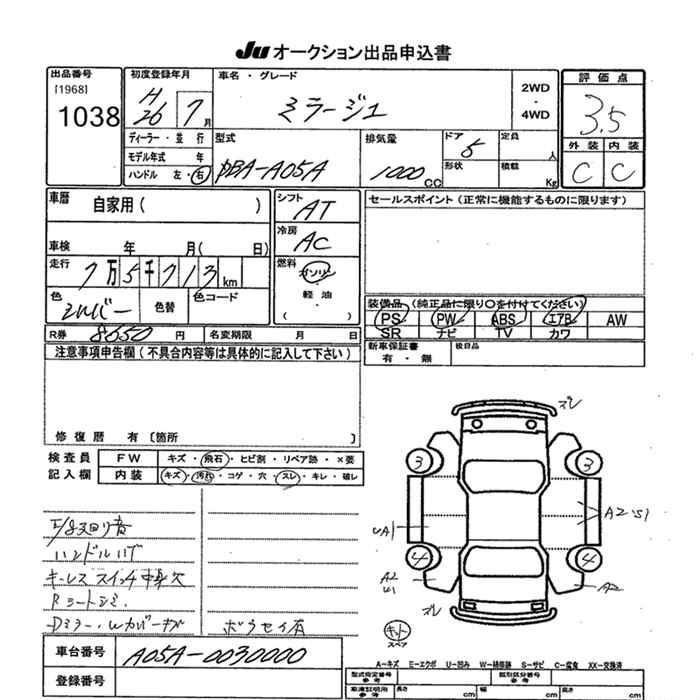 Ju オークション出品申込書
出品番号
[1968]
1038
初度登録年月
H 26 7月
車名・グレード
ミラージュ
2WD
・
4WD
評価点
3.5
ディーラー・並 行
モデル年式 年
ハンドル 左・右
型式
DBA-A05A
排気量
1000 CC
ドア 5
形状
定員 人
積載 Kg
外装 内装
C C
車歴 自家用( )
シフト AT
セールスポイント(正常に機能するものに限ります)
車検 年 月( 日)
冷房 AC
走行 7万5千713km
燃料 ガソリン
軽油
( ・ )
色 シルバー 色替 色コード
装備品(純正品に限り○を付けてください)
PS PW ABS エアB AW
SR ナビ TV カワ
R券 8650円 名変期限 月 日
新車保証書 後日品
有・無
注意事項申告欄(不具合内容等は具体的に記入して下さい)
修復歴 有〔箇所
検査員 FW キズ・飛石・ヒビ割・リペア跡・×要
記入欄 内装 キズ・汚れ・コゲ・穴・スレ・キレ・破レ
ズレ
3 3
A2 S1
UA1
4 4
A2
U1
A2
ズレ
キット
スペア
ハンドルハゲ
キーレススイッチ
Rシートシミ
Dミラー・Wカバーキズ
ボウセイ有
車台番号 A05A-0030000
登録番号
A-キズ E-エクボ U-凹み W-補修跡 S-サビ C-腐食 XX-交換済
型式指定番号
参考
類別区分番号
参考
車庫証明用
参考
長さ cm 幅 cm 高さ cm